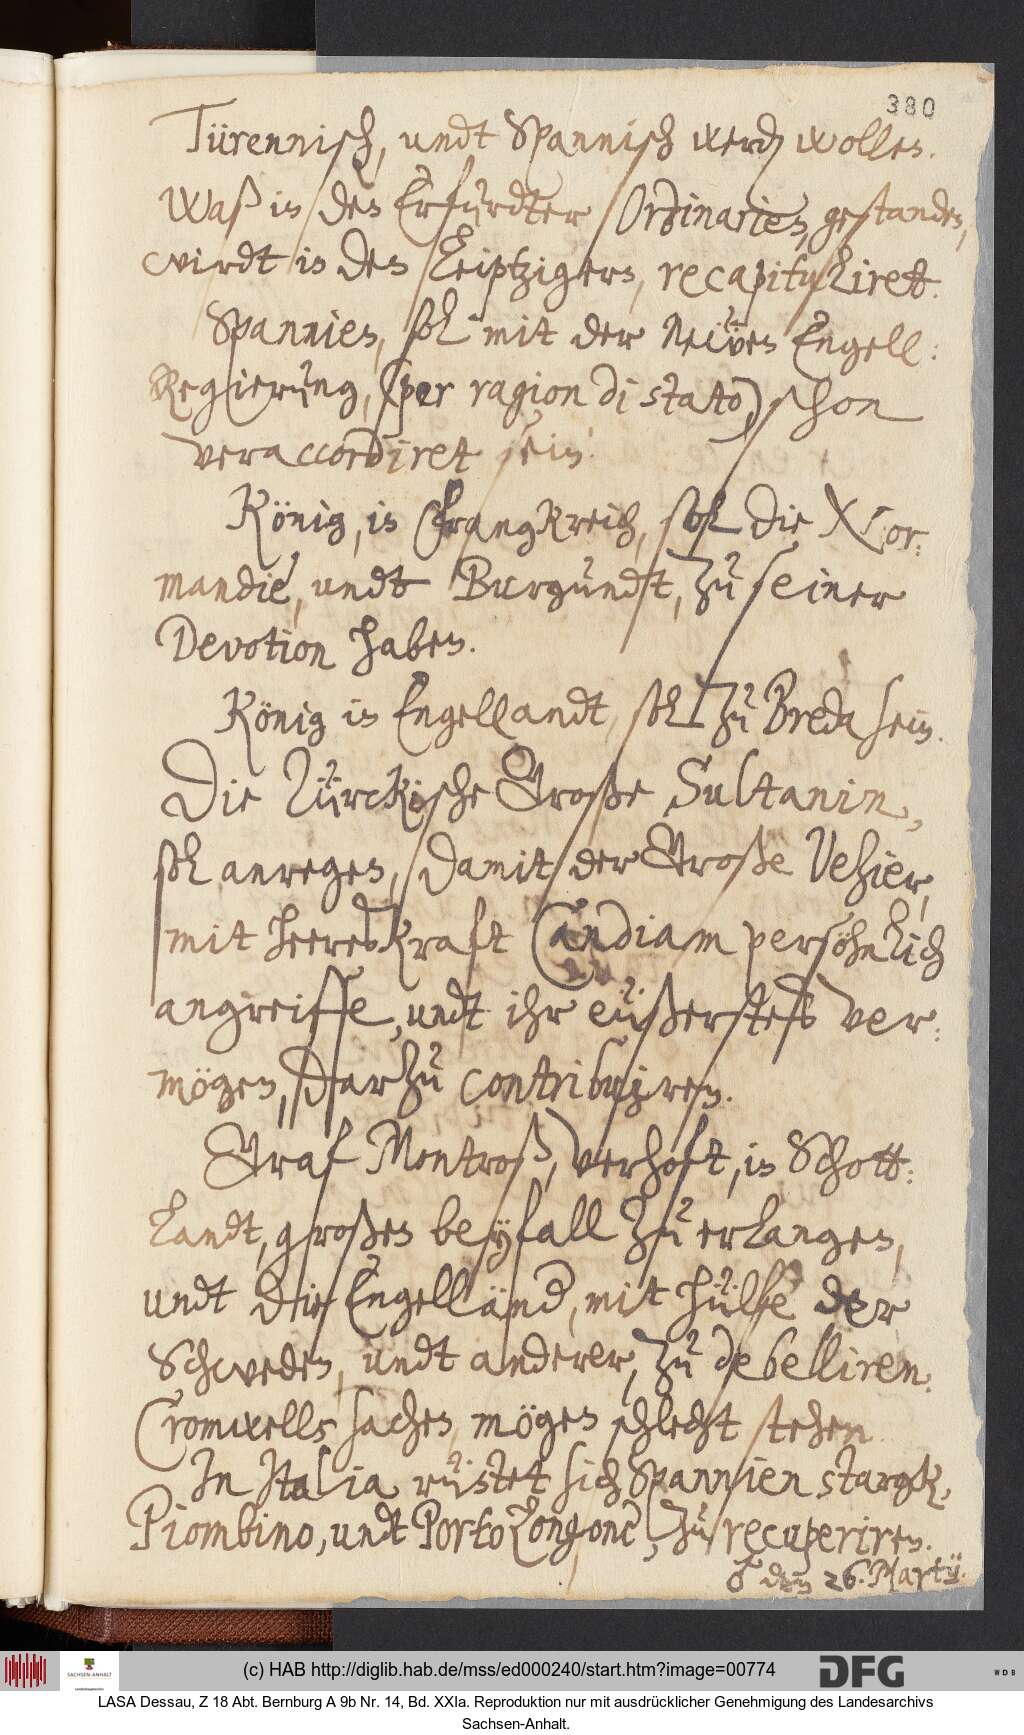 380
Türennisch, undt Spannisch werden wollen.
Waß in den Erfurdter Ordinarien, gestanden,
wirdt in den Leiptzigern, recapituliret.
Spannien, soll mit der Neẅen Engell:
Regierung, (per ragion di stato) schon
veraccordiret sein.
König, in Franckreich, soll die Nor:
mandie, undt Burgundt, zu seiner
Devotion haben.
König in Engellandt, soll zu Breda sein.
Die Türckische Große Sultanin,
soll anregen, damit der Große Vezier,
mit heereskraft Candiam persöhnlich
angreiffe, undt ihr eüßerstes ver:
mögen, darzu contribuiren.
Graf Montroß, verhoft, in Schott:
landt, großen beyfall zu erlangen,
undt die Engelländ, mit hülfe der
Schweden, undt anderer, zu debelliren.
Cromwells sachen, mögen schlecht stehen
In Italia rüstet sich Spannien starck,
Piombino, undt Porto Longone, zu recuperiren.
♂ den 26. Martij.
(c) HAB http://diglib.hab.de/mss/ed000240/start.htm?image=00774
SACHSEN-ANHALT
DFG
WDB
LASA Dessau, Z 18 Abt. Bernburg A 9b Nr. 14, Bd. XXIa. Reproduktion nur mit ausdrücklicher Genehmigung des Landesarchivs
Sachsen-Anhalt.